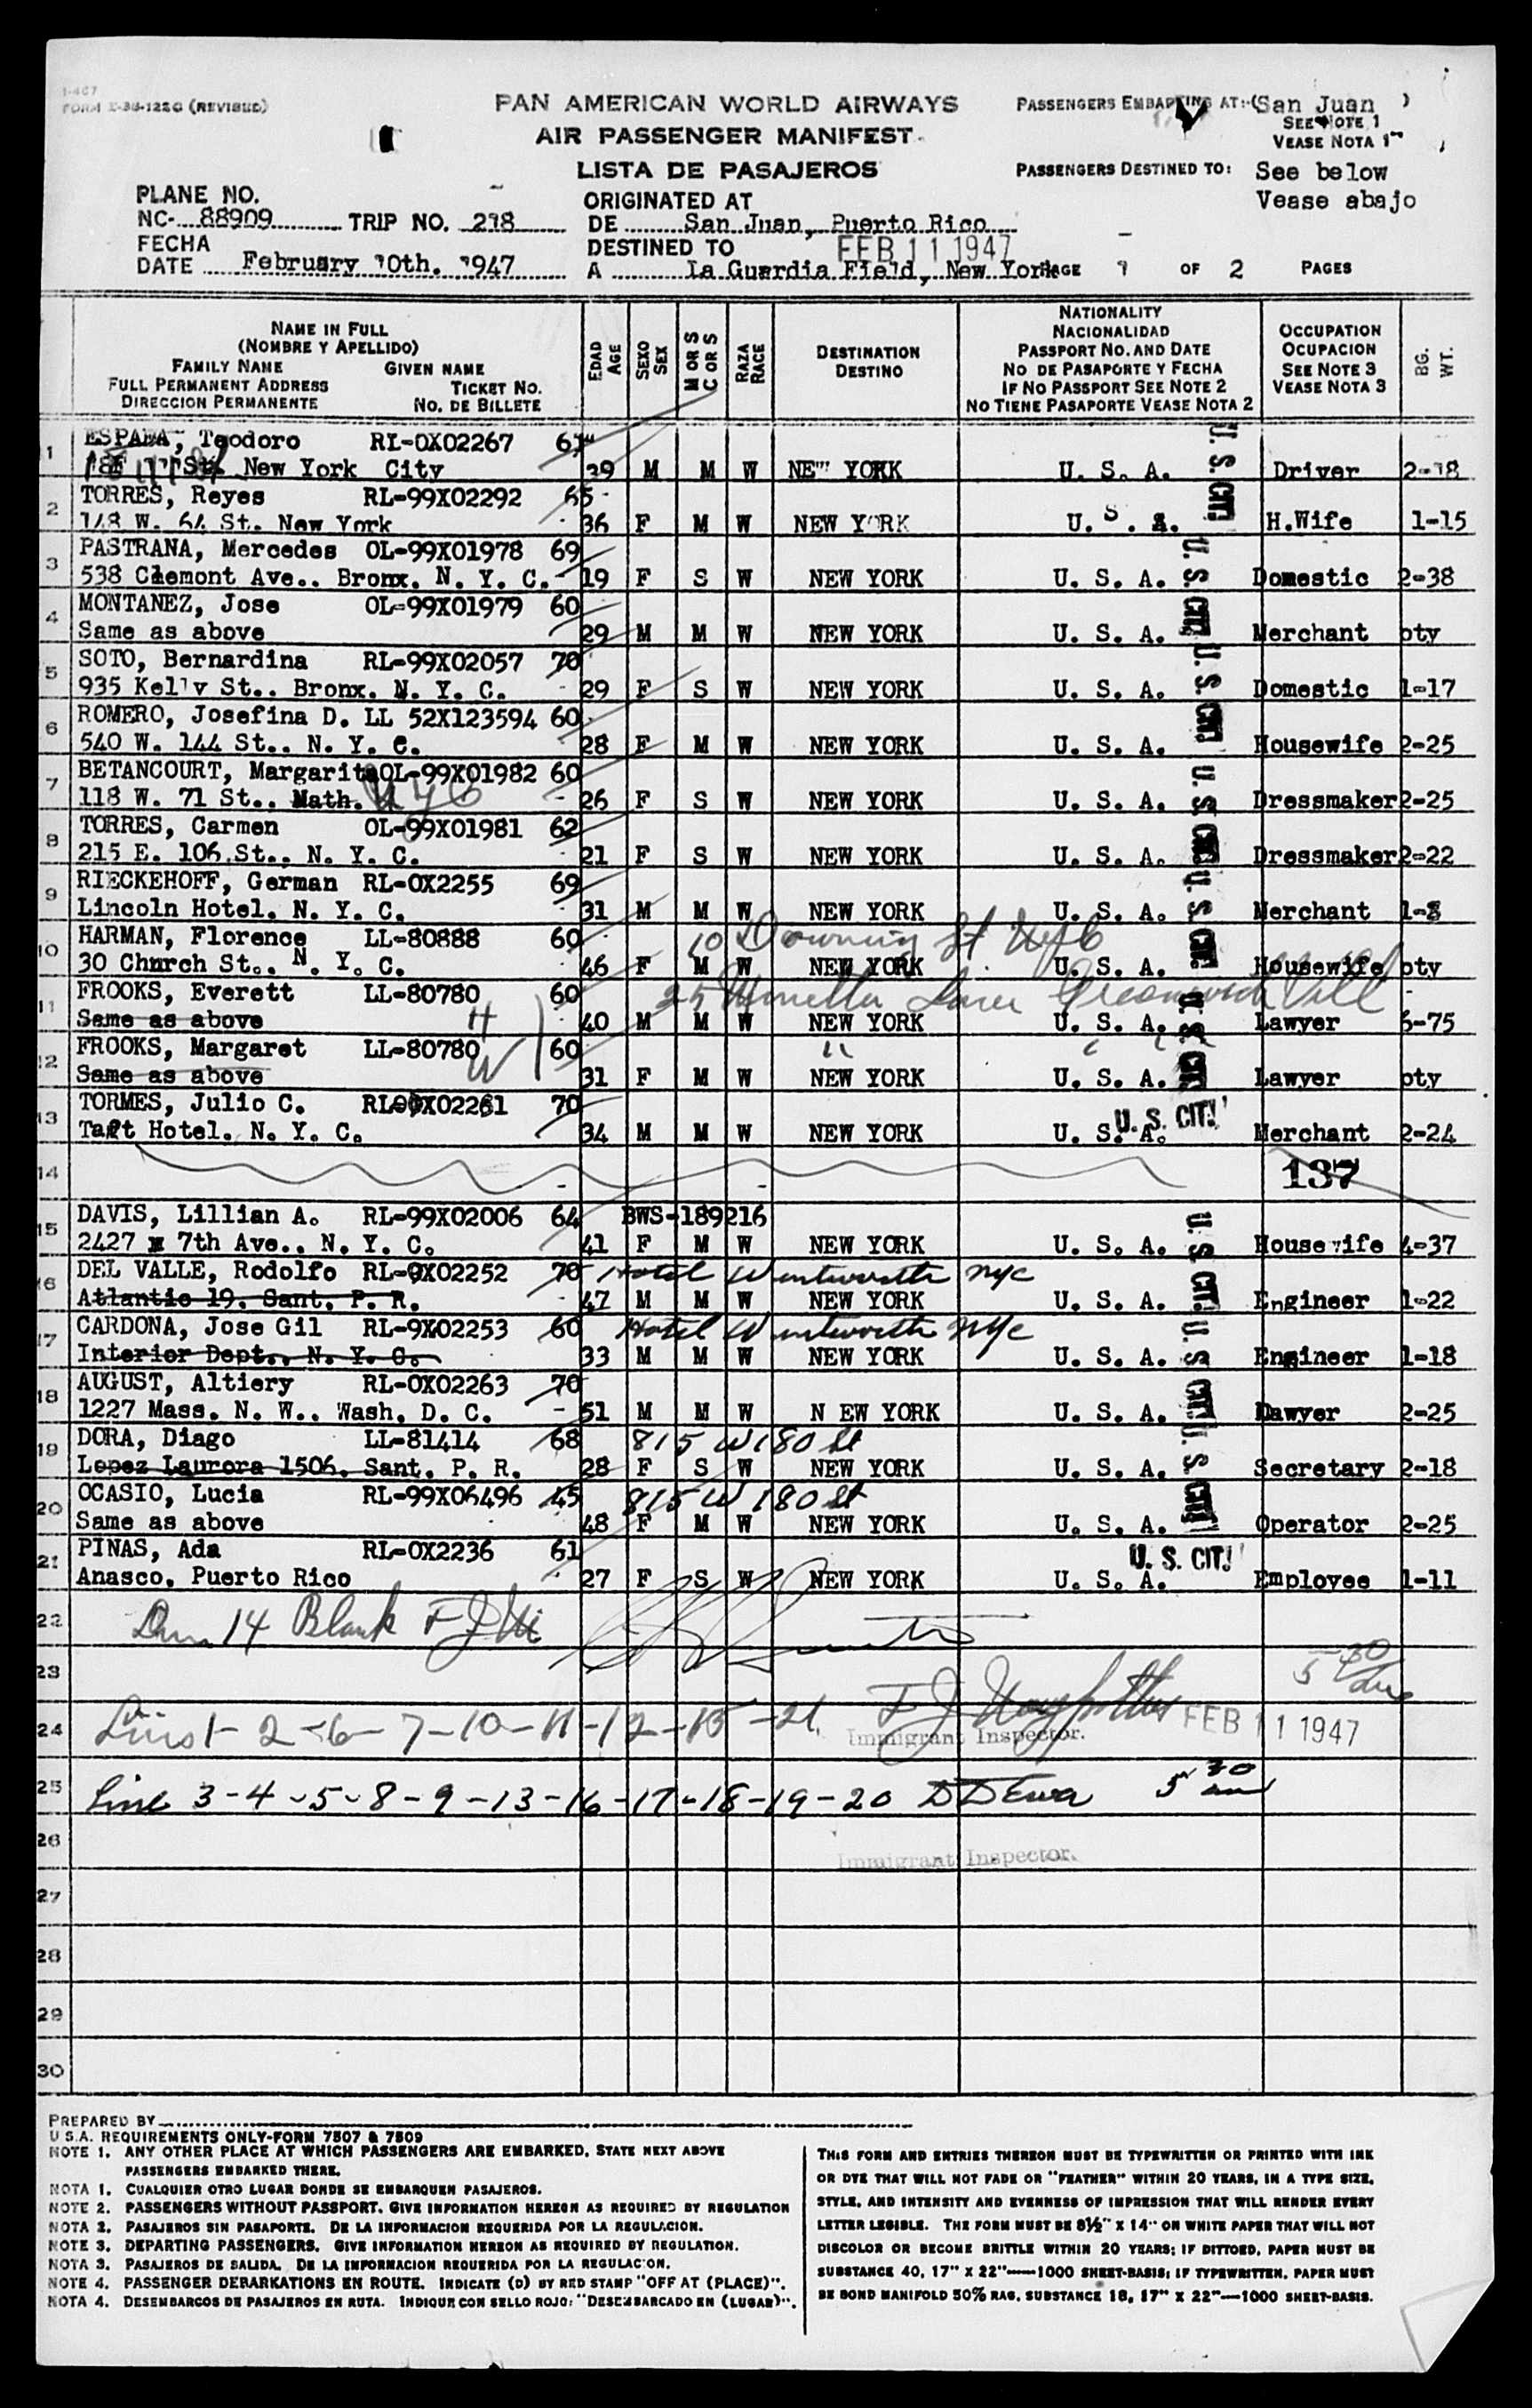 1-467
FORM X-3B-122G (REVISED)
PAN AMERICAN WORLD AIRWAYS
AIR PASSENGER MANIFEST
LISTA DE PASAJEROS
PASSENGERS EMBARKING AT:-(San Juan )
SEE NOTE 1
VEASE NOTA 1
PASSENGERS DESTINED TO: See below
Vease abajo
PLANE NO.
NC- 88909 TRIP NO. 218
FECHA
DATE February 10th. 1947
ORIGINATED AT
DE San Juan, Puerto Rico
DESTINED TO FEB 11 1947
A La Guardia Field, New York
PAGE 1 OF 2 PAGES
NAME IN FULL
(NOMBRE Y APELLIDO)
FAMILY NAME GIVEN NAME
FULL PERMANENT ADDRESS TICKET NO.
DIRECCION PERMANENTE NO. DE BILLETE
EDAD AGE
SEXO SEX
M OR S C OR S
RAZA RACE
DESTINATION
DESTINO
NATIONALITY
NACIONALIDAD
PASSPORT NO. AND DATE
NO DE PASAPORTE Y FECHA
IF NO PASSPORT SEE NOTE 2
NO TIENE PASAPORTE VEASE NOTA 2
OCCUPATION
OCUPACION
SEE NOTE 3
VEASE NOTA 3
BG. WT.
1 ESPADA, Teodoro RL-0X02267 61
St. New York City 39 M M W NEW YORK U. S. A. U. S. CIT. Driver 2-18
2 TORRES, Reyes RL-99X02292 65
148 W. 64 St. New York 36 F M W NEW YORK U. S. A. H.Wife 1-15
3 PASTRANA, Mercedes OL-99X01978 69
538 Clemont Ave.. Bronx. N. Y. C. 19 F S W NEW YORK U. S. A. U. S. CIT. Domestic 2-38
4 MONTANEZ, Jose OL-99X01979 60
Same as above 29 M M W NEW YORK U. S. A. Merchant pty
5 SOTO, Bernardina RL-99X02057 70
935 Kelly St.. Bronx. N. Y. C. 29 F S W NEW YORK U. S. A. U. S. CIT. Domestic 1-17
6 ROMERO, Josefina D. LL 52X123594 60
540 W. 144 St.. N. Y. C. 28 F M W NEW YORK U. S. A. Housewife 2-25
7 BETANCOURT, Margarita OL-99X01982 60
118 W. 71 St.. Math. NYC 26 F S W NEW YORK U. S. A. U. S. CIT. Dressmaker 2-25
8 TORRES, Carmen OL-99X01981 62
215 E. 106 St.. N. Y. C. 21 F S W NEW YORK U. S. A. Dressmaker 2-22
9 RIECKEHOFF, German RL-0X2255 69
Lincoln Hotel. N. Y. C. 31 M M W NEW YORK U. S. A. U. S. CIT. Merchant 1-8
10 HARMAN, Florence LL-80888 60 10 Downing St NYC
30 Church St.. N. Y. C. 46 F M W NEW YORK U. S. A. Housewife pty
11 FROOKS, Everett LL-80780 60 25 Minetta Lane Greenwich Vill
Same as above H 40 M M W NEW YORK U. S. A. U. S. CIT. Lawyer 6-75
12 FROOKS, Margaret LL-80780 60
Same as above W 31 F M W NEW YORK U. S. A. Lawyer pty
13 TORMES, Julio C. RL-0X02261 70
Taft Hotel. N. Y. C. 34 M M W NEW YORK U. S. A. U. S. CIT. Merchant 2-24
14 137
15 DAVIS, Lillian A. RL-99X02006 64 BWS-189216
2427 x 7th Ave.. N. Y. C. 41 F M W NEW YORK U. S. A. U. S. CIT. Housewife 4-37
16 DEL VALLE, Rodolfo RL-0X02252 70 Hotel Wentworth NYC
Atlantic 19. Sant. P. R. 47 M M W NEW YORK U. S. A. Engineer 1-22
17 CARDONA, Jose Gil RL-9X02253 60 Hotel Wentworth NYC
Interior Dept.. N. Y. C. 33 M M W NEW YORK U. S. A. U. S. CIT. Engineer 1-18
18 AUGUST, Altiery RL-0X02263 70
1227 Mass. N. W.. Wash. D. C. 51 M M W N EW YORK U. S. A. Lawyer 2-25
19 DORA, Diago LL-81414 68 815 W 180 St
Lopez Laurora 1506. Sant. P. R. 28 F S W NEW YORK U. S. A. U. S. CIT. Secretary 2-18
20 OCASIO, Lucia RL-99X06496 45 815 W 180 St
Same as above 48 F M W NEW YORK U. S. A. Operator 2-25
21 PINAS, Ada RL-0X2236 61
Anasco. Puerto Rico 27 F S W NEW YORK U. S. A. U. S. CIT. Employee 1-11
22 14 Blank
23 5 30
24 Lines 1-2-6-7-10-11-12-15-21 Immigrant Inspector. FEB 11 1947
25 Line 3-4-5-8-9-13-16-17-18-19-20 5 30 am
26 Immigrant Inspector.
27
28
29
30
PREPARED BY
U S.A. REQUIREMENTS ONLY-FORM 7507 & 7509
NOTE 1. ANY OTHER PLACE AT WHICH PASSENGERS ARE EMBARKED, STATE NEXT ABOVE
PASSENGERS EMBARKED THERE.
NOTA 1. CUALQUIER OTRO LUGAR DONDE SE EMBARQUEN PASAJEROS.
NOTE 2. PASSENGERS WITHOUT PASSPORT. GIVE INFORMATION HEREON AS REQUIRED BY REGULATION
NOTA 2. PASAJEROS SIN PASAPORTE. DE LA INFORMACION REQUERIDA POR LA REGULACION.
NOTE 3. DEPARTING PASSENGERS. GIVE INFORMATION HEREON AS REQUIRED BY REGULATION.
NOTA 3. PASAJEROS DE SALIDA. DE LA INFORMACION REQUERIDA POR LA REGULACION.
NOTE 4. PASSENGER DEBARKATIONS EN ROUTE. INDICATE (D) BY RED STAMP "OFF AT (PLACE)".
NOTA 4. DESEMBARCOS DE PASAJEROS EN RUTA. INDIQUE CON SELLO ROJO: "DESEMBARCADO EN (LUGAR)".
THIS FORM AND ENTRIES THEREON MUST BE TYPEWRITTEN OR PRINTED WITH INK
OR DYE THAT WILL NOT FADE OR "FEATHER" WITHIN 20 YEARS, IN A TYPE SIZE,
STYLE, AND INTENSITY AND EVENNESS OF IMPRESSION THAT WILL RENDER EVERY
LETTER LEGIBLE. THE FORM MUST BE 8½" X 14" ON WHITE PAPER THAT WILL NOT
DISCOLOR OR BECOME BRITTLE WITHIN 20 YEARS; IF DITTOED, PAPER MUST BE
SUBSTANCE 40, 17" X 22"——1000 SHEET-BASIS; IF TYPEWRITTEN, PAPER MUST
BE BOND MANIFOLD 50% RAG, SUBSTANCE 18, 17" X 22"—1000 SHEET-BASIS.